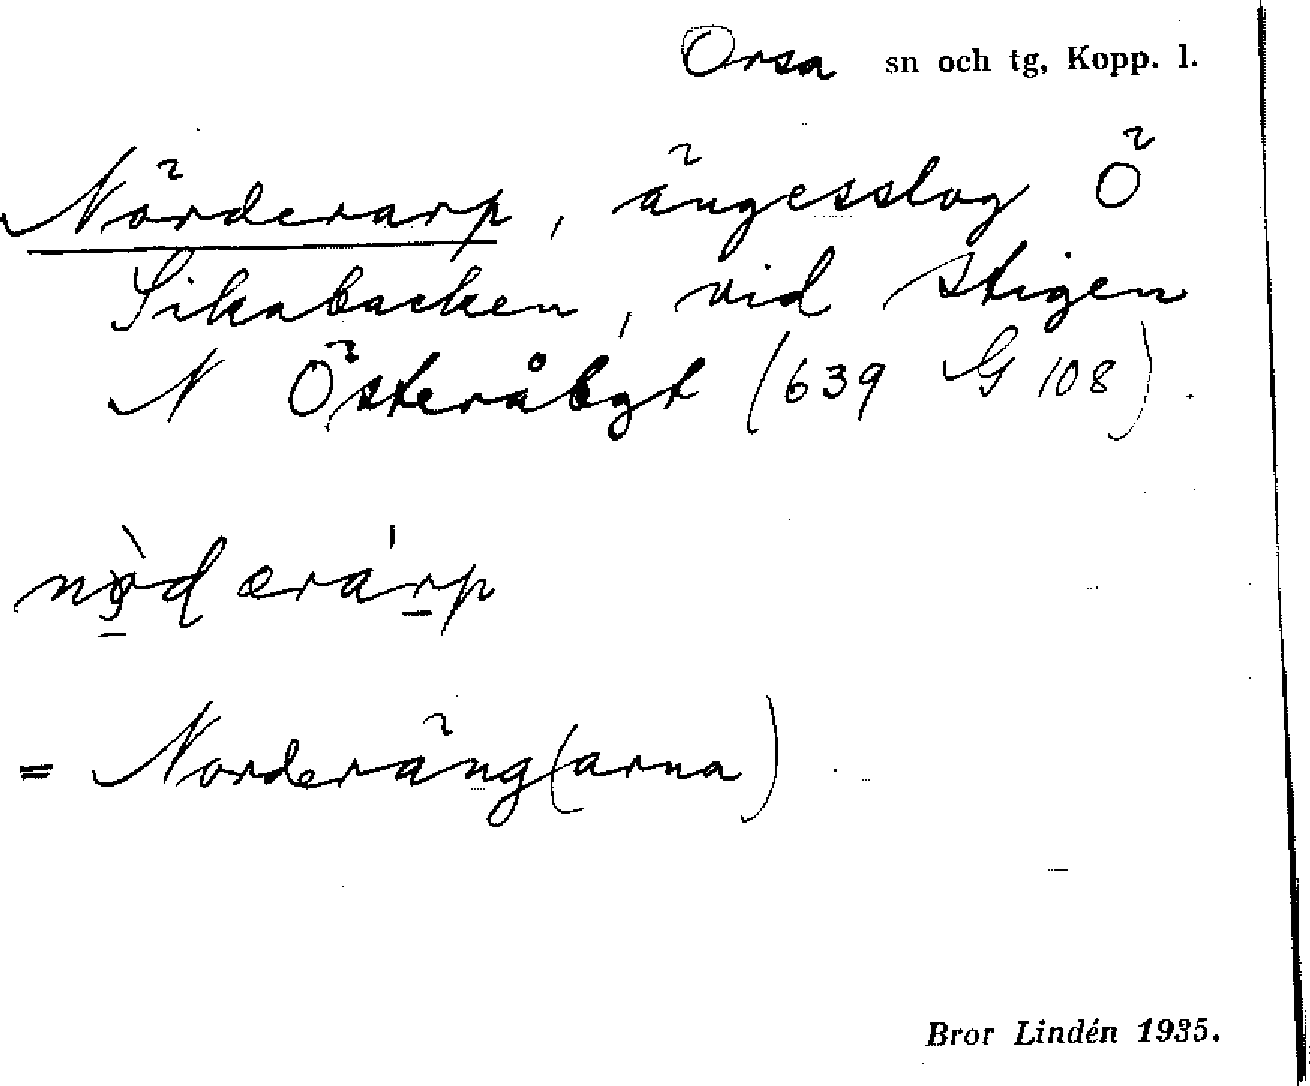 Orsa sn och tg, Kopp. l.
Nörderarp, ängesslog Ö
Sikabacken, vid stigen
N Österåbgt (639 G 108).
= Norderäng(arna)
Bror Lindén 1935.